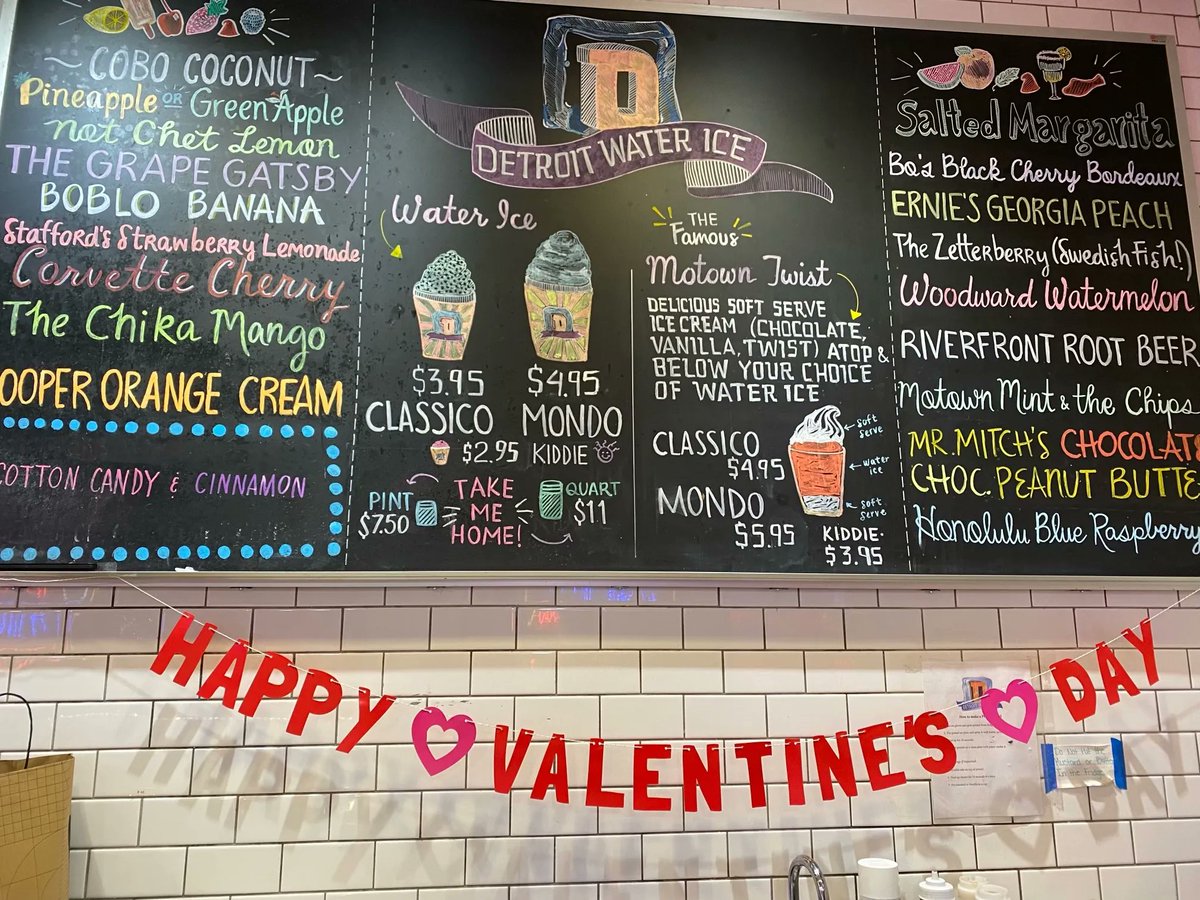 COBO COCONUT
Pineapple OR Green Apple
Not Chet Lemon
THE GRAPE GATSBY
BOBLO BANANA
Stafford's Strawberry Lemonade
Corvette Cherry
The Chika Mango
OOPER ORANGE CREAM
COTTON CANDY & CINNAMON
D
DETROIT WATER ICE
Water Ice
$3.95
CLASSICO
$4.95
MONDO
$2.95 KIDDIE
PINT
$7.50
TAKE
ME
HOME!
QUART
$11
THE
Famous
Motown Twist
DELICIOUS SOFT SERVE
ICE CREAM (CHOCOLATE,
VANILLA, TWIST) ATOP &
BELOW YOUR CHOICE
OF WATER ICE
CLASSICO
$4.95
MONDO
$5.95
soft serve
water ice
soft serve
KIDDIE-
$3.95
Salted Margarita
Bo's Black Cherry Bordeaux
ERNIE'S GEORGIA PEACH
The Zetterberry (Swedish Fish!)
Woodward Watermelon
RIVERFRONT ROOT BEER
Motown Mint & the Chips
MR. MITCH'S CHOCOLATE
CHOC. PEANUT BUTTE
Honolulu Blue Raspberry
HAPPY VALENTINE'S DAY
Do Not Put the
In the Fridge